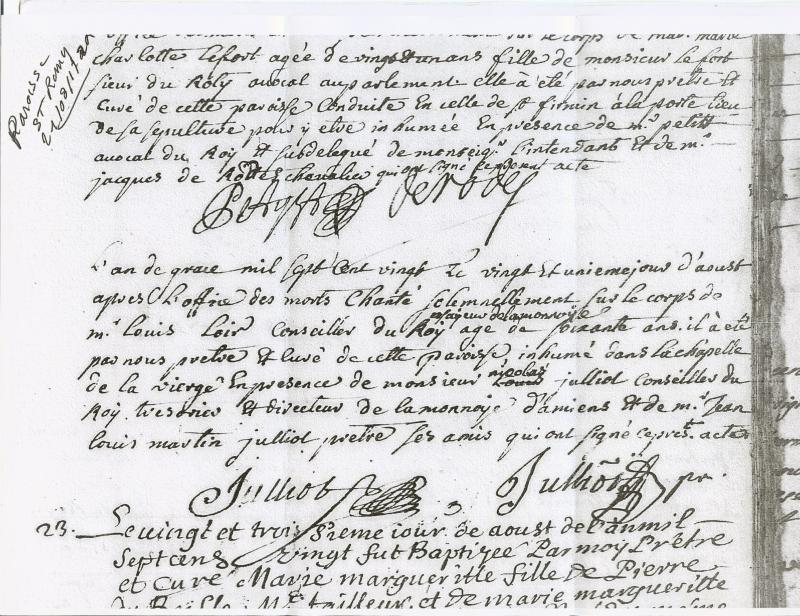 Paroisse
St Remy
21/08/1720
sur le corps de mar. marie
charlotte lefort agée de vingt et un ans fille de monsieur le fort
sieur du Roly avocat au parlement elle à été par nous pretre et
Curé de cette paroisse Conduite En celle de st firmin a la porte lieu
De sa sepulture pour y etre inhumée En presence de mr. petit
avocat du Roy Et subdelegué de monseigr. l'intendant Et de mr.
jacques de chevalier qui ont signé le present acte
L'an de grace mil sept Cent vingt Le vingt Et unieme jour d'aoust
apres L'office des morts Chanté solemnellement sur le corps de
majeur de la monnoye
mr. louis loir Conseiller du Roy agé de soixante ans. il à été
par nous pretre Et Curé de cette paroisse inhumé dans la chapelle
nicolas
de la vierge En presence de monsieur louis julliot Conseiller du
Roy. tresorier Et directeur de la monnoye d'amiens Et de mr. Jean
louis martin julliot pretre ses amis qui ont signé ce prest. acte
Julliot Julliot pr.
23. Le vingt et troisieme jour de aoust de l'an mil
Sept cens vingt fut Baptizee Par moy Prêtre
et Curé Marie margueritte fille de Pierre
tailleur, et de marie margueritte